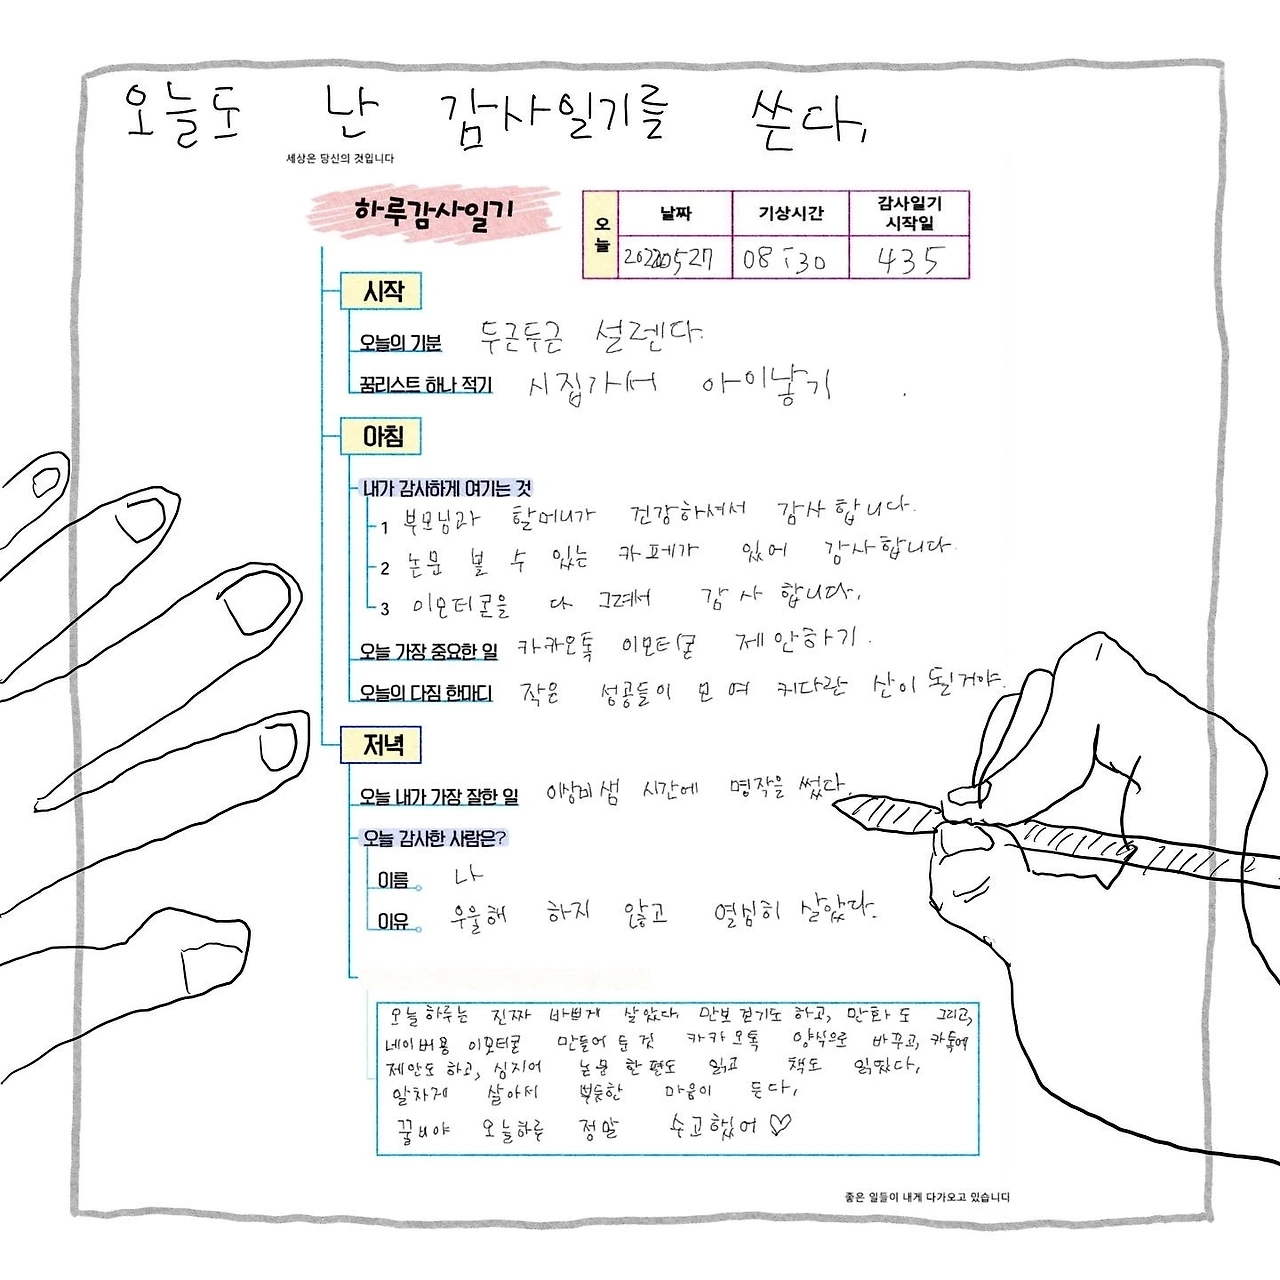 오늘도 난 감사일기를 쓴다,
세상은 당신의 것입니다
하루감사일기
오늘
날짜 기상시간 감사일기 시작일
20220527 08:30 435
시작
오늘의 기분 두근두근 설렌다.
꿈리스트 하나 적기 시집가서 아이낳기.
아침
내가 감사하게 여기는 것
1 부모님과 할머니가 건강하셔서 감사합니다.
2 논문 볼 수 있는 카페가 있어 감사합니다.
3 이모티콘을 다 그려서 감사합니다.
오늘 가장 중요한 일 카카오톡 이모티콘 제안하기.
오늘의 다짐 한마디 작은 성공들이 모여 커다란 산이 될거야.
저녁
오늘 내가 가장 잘한 일 이상미샘 시간에 명작을 썼다.
오늘 감사한 사람은?
이름 나
이유 우울해 하지 않고 열심히 살았다.
오늘 하루는 진짜 바쁘게 살았다. 만보 걷기도 하고, 만화도 그리고,
네이버용 이모티콘 만들어 둔 것 카카오톡 양식으로 바꾸고, 카톡에
제안도 하고, 심지어 논문 한 편도 읽고 책도 읽었다,
알차게 살아서 뿌듯한 마음이 든다,
꿀비야 오늘하루 정말 수고했어♡
좋은 일들이 내게 다가오고 있습니다